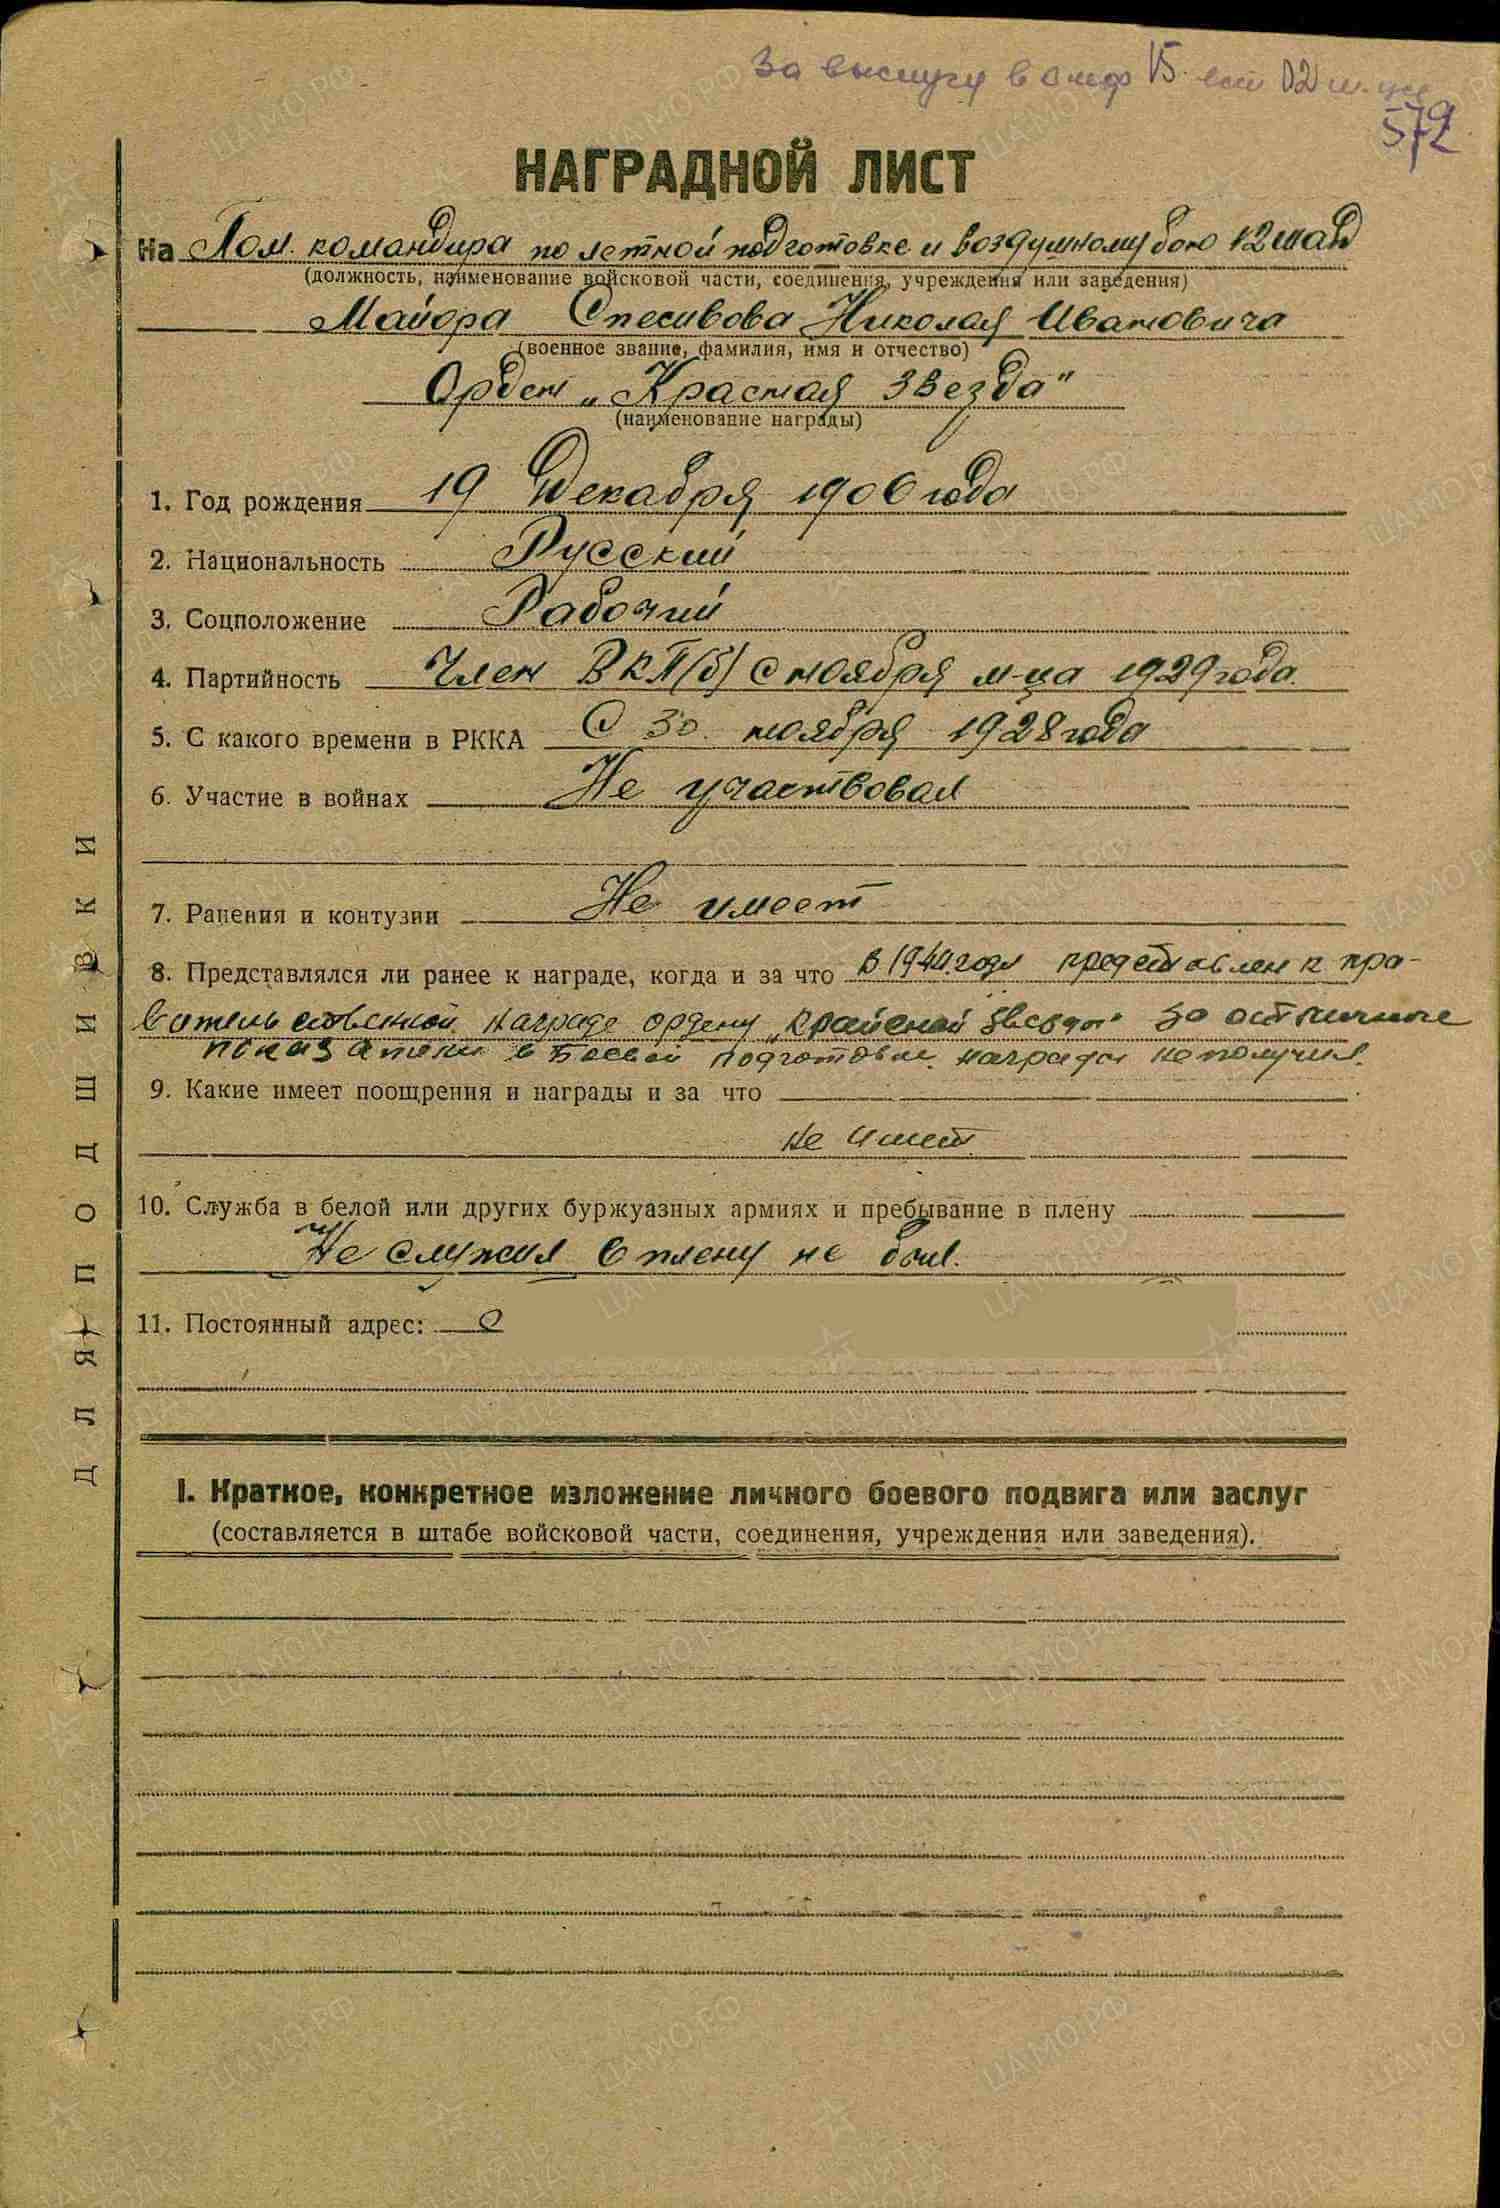 За выслугу в 15 лет
572
НАГРАДНОЙ ЛИСТ
На Пом. командира по летной подготовке и воздушному бою 12 шад
(должность, наименование войсковой части, соединения, учреждения или заведения)
Майора Спесивова Николая Ивановича
(военное звание, фамилия, имя и отчество)
Орден „Красная Звезда"
(наименование награды)
1. Год рождения 19 Декабря 1906 года
2. Национальность Русский
3. Соцположение Рабочий
4. Партийность Член ВКП(б) с ноября м-ца 1929 года.
5. С какого времени в РККА С 30. ноября 1928 года
6. Участие в войнах Не участвовал
7. Ранения и контузии Не имеет
8. Представлялся ли ранее к награде, когда и за что В 1940 году представлен к пра-
вительственной награде ордену „Красной Звезды" за отличные
показатели в боевой подготовке. награды не получил.
9. Какие имеет поощрения и награды и за что
не имеет
10. Служба в белой или других буржуазных армиях и пребывание в плену
Не служил в плену не был.
11. Постоянный адрес:
I. Краткое, конкретное изложение личного боевого подвига или заслуг
(составляется в штабе войсковой части, соединения, учреждения или заведения).
ДЛЯ ПОДШИВКИ
ЦАМО.РФ
ПАМЯТЬ
НАРОДА